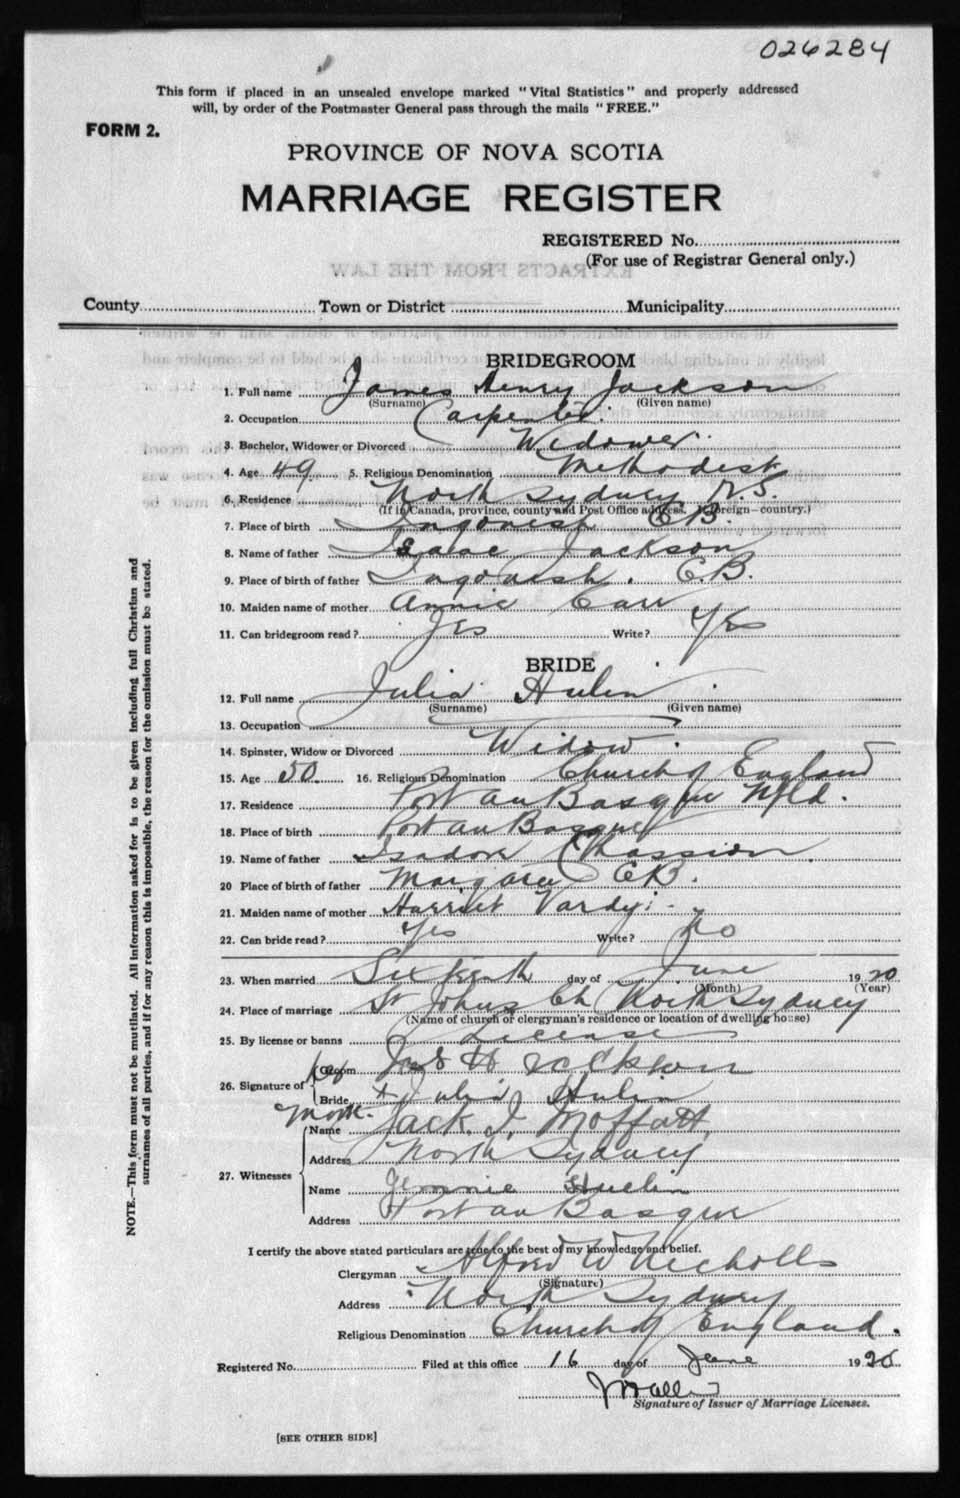 026284
This form if placed in an unsealed envelope marked "Vital Statistics" and properly addressed
will, by order of the Postmaster General pass through the mails "FREE."
FORM 2.
PROVINCE OF NOVA SCOTIA
MARRIAGE REGISTER
REGISTERED No.
(For use of Registrar General only.)
EXTRACTS FROM THE LAW
County Town or District Municipality
BRIDEGROOM
1. Full name James Henry Jackson
(Surname) (Given name)
2. Occupation Carpenter.
3. Bachelor, Widower or Divorced Widower.
4. Age 49 5. Religious Denomination Methodist
6. Residence North Sydney N.S.
(If in Canada, province, county and Post Office address. If foreign—country.)
7. Place of birth Ingonish C.B.
8. Name of father Isaac Jackson
9. Place of birth of father Ingonish. C.B.
10. Maiden name of mother Annie Carr
11. Can bridegroom read? Yes Write? Yes
BRIDE
12. Full name Julia Hulin
(Surname) (Given name)
13. Occupation
14. Spinster, Widow or Divorced Widow.
15. Age 50 16. Religious Denomination Church of England
17. Residence Port au Basque Nfld.
18. Place of birth Port au Basque
19. Name of father Isadore Chassion
20 Place of birth of father Margaree CB.
21. Maiden name of mother Harriet Vardy
22. Can bride read? Yes Write? No
23. When married Sixteenth day of June 1920
(Month) (Year)
24. Place of marriage St Johns Ch North Sydney
(Name of church or clergyman's residence or location of dwelling house)
25. By license or banns License
26. Signature of Groom Jas H Jackson
her Bride + Julia Hulin
mark.
27. Witnesses
Name Jack. J. Moffatt
Address North Sydney
Name Jennie Hulin
Address Port au Basque
I certify the above stated particulars are true to the best of my knowledge and belief.
Clergyman Alfred W Nicholls
(Signature)
Address North Sydney
Religious Denomination Church of England.
Registered No. Filed at this office 16 day of June 1920
Signature of Issuer of Marriage Licenses.
[SEE OTHER SIDE]
NOTE.—This form must not be mutilated. All information asked for is to be given including full Christian and
surnames of all parties, and if for any reason this is impossible, the reason for the omission must be stated.